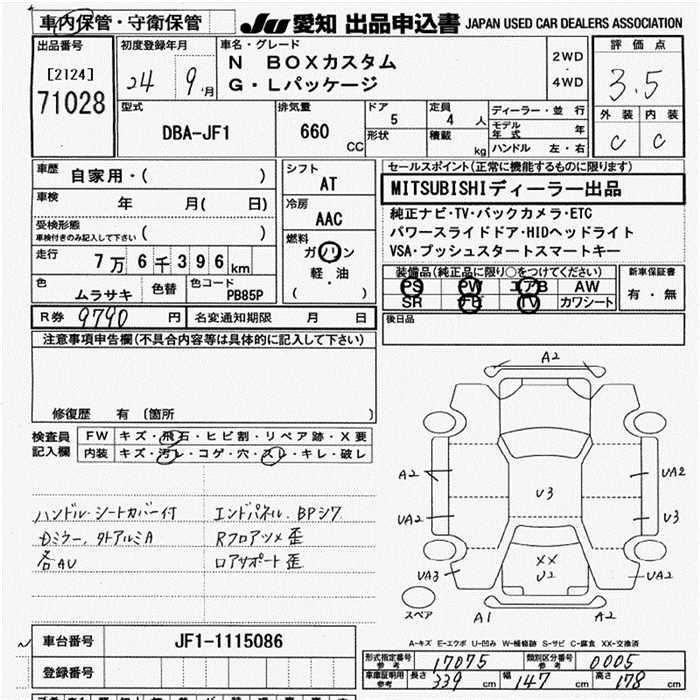 車内保管・守衛保管
JU 愛知 出品申込書 JAPAN USED CAR DEALERS ASSOCIATION
出品番号
[2124]
71028
初度登録年月
24 9月
車名・グレード
N BOXカスタム
G・Lパッケージ
2WD
・
4WD
評価点
3.5
外装 内装
C C
型式
DBA-JF1
排気量
660
CC
ドア
5
形状
定員
4 人
積載
kg
ディーラー・並行
モデル年式 年
ハンドル 左・右
車歴
自家用・( )
車検
年 月( 日)
受検形態
車検付きのみ記入して下さい ( )
走行
7万6千396km
色
ムラサキ
色替
色コード
PB85P
シフト
AT
冷房
AAC
燃料
ガソリン
軽・油
( )
セールスポイント(正常に機能するものに限ります)
MITSUBISHIディーラー出品
純正ナビ・TV・バックカメラ・ETC
パワースライドドア・HIDヘッドライト
VSA・プッシュスタートスマートキー
装備品(純正品に限り○をつけてください)
PS PW エアB AW
SR TV カワシート
新車保証書
有・無
R券 9790 円
名変通知期限 月 日
後日品
注意事項申告欄(不具合内容等は具体的に記入して下さい)
修復歴 有 〔箇所 〕
検査員
記入欄
FW キズ・飛石・ヒビ割・リペア跡・X要
内装 キズ・汚レ・コゲ・穴・スレ・キレ・破レ
ハンドル・シートカバー付
Dミラー、タトアルミA
各AU
エンドパネル、BPシワ
Rフロアツメ歪
ロアサポート歪
A2
A2
UA2
UA2
U3
U3
UA3
UA2
XX
U2
スペア
A1
A2
A-キズ E-エクボ U-凹み W-補修跡 S-サビ C-腐食 XX-交換済
車台番号
JF1-1115086
登録番号
形式指定番号
参考
17075
類別区分番号
参考
0005
車庫証明用
参考
長さ 339 cm
幅 147 cm
高さ 178 cm